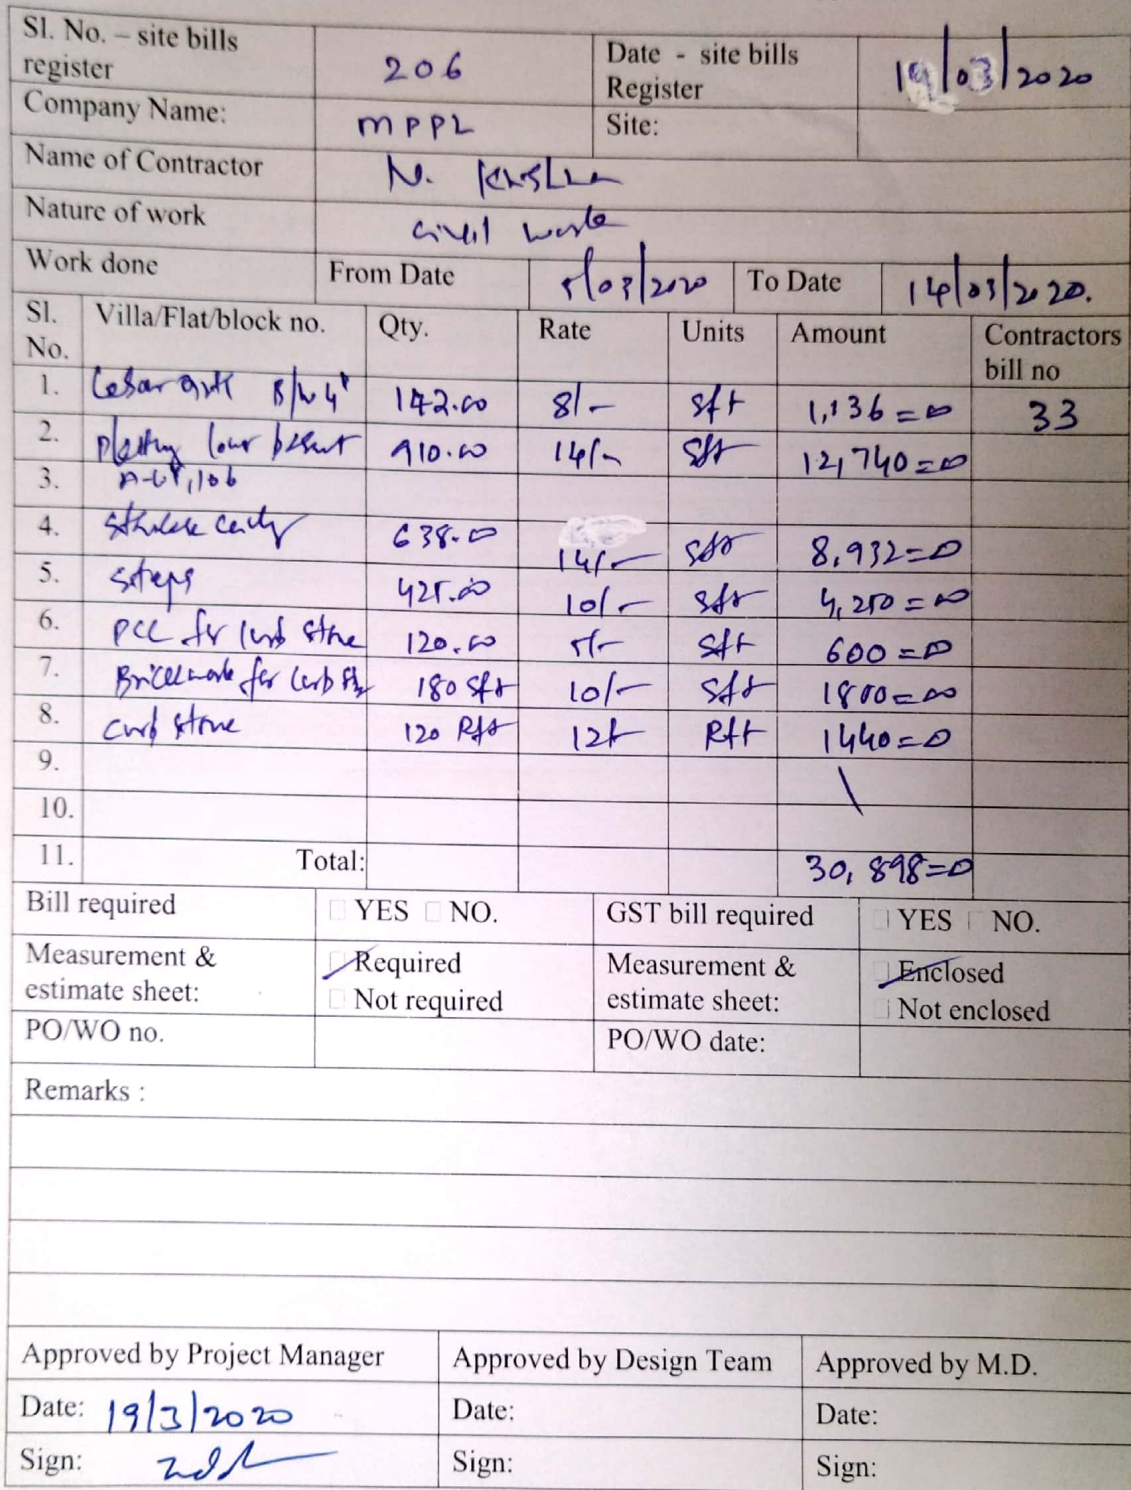 Sl. No. – site bills register 206 Date - site bills Register 19/03/2020
Company Name: MPPL Site:
Name of Contractor N. Krishna
Nature of work civil work
Work done From Date 5/03/2020 To Date 14/03/2020.
Sl. No. Villa/Flat/block no. Qty. Rate Units Amount Contractors bill no
1. B/w 4" 142.00 8/- sft 1,136=00 33
2. 910.00 14/- sft 12,740=00
3.
4. 638.00 14/- sft 8,932=00
5. steps 425.00 10/- sft 4,250=00
6. PCC for curb stone 120.00 5/- sft 600=00
7. Brickwork for curb 180 sft 10/- sft 1800=00
8. curb stone 120 Rft 12/- Rft 1440=00
9.
10.
11. Total: 30,898=00
Bill required YES NO. GST bill required YES NO.
Measurement & estimate sheet: Required Not required Measurement & estimate sheet: Enclosed Not enclosed
PO/WO no. PO/WO date:
Remarks :
Approved by Project Manager Approved by Design Team Approved by M.D.
Date: 19/3/2020 Date: Date:
Sign: Sign: Sign: